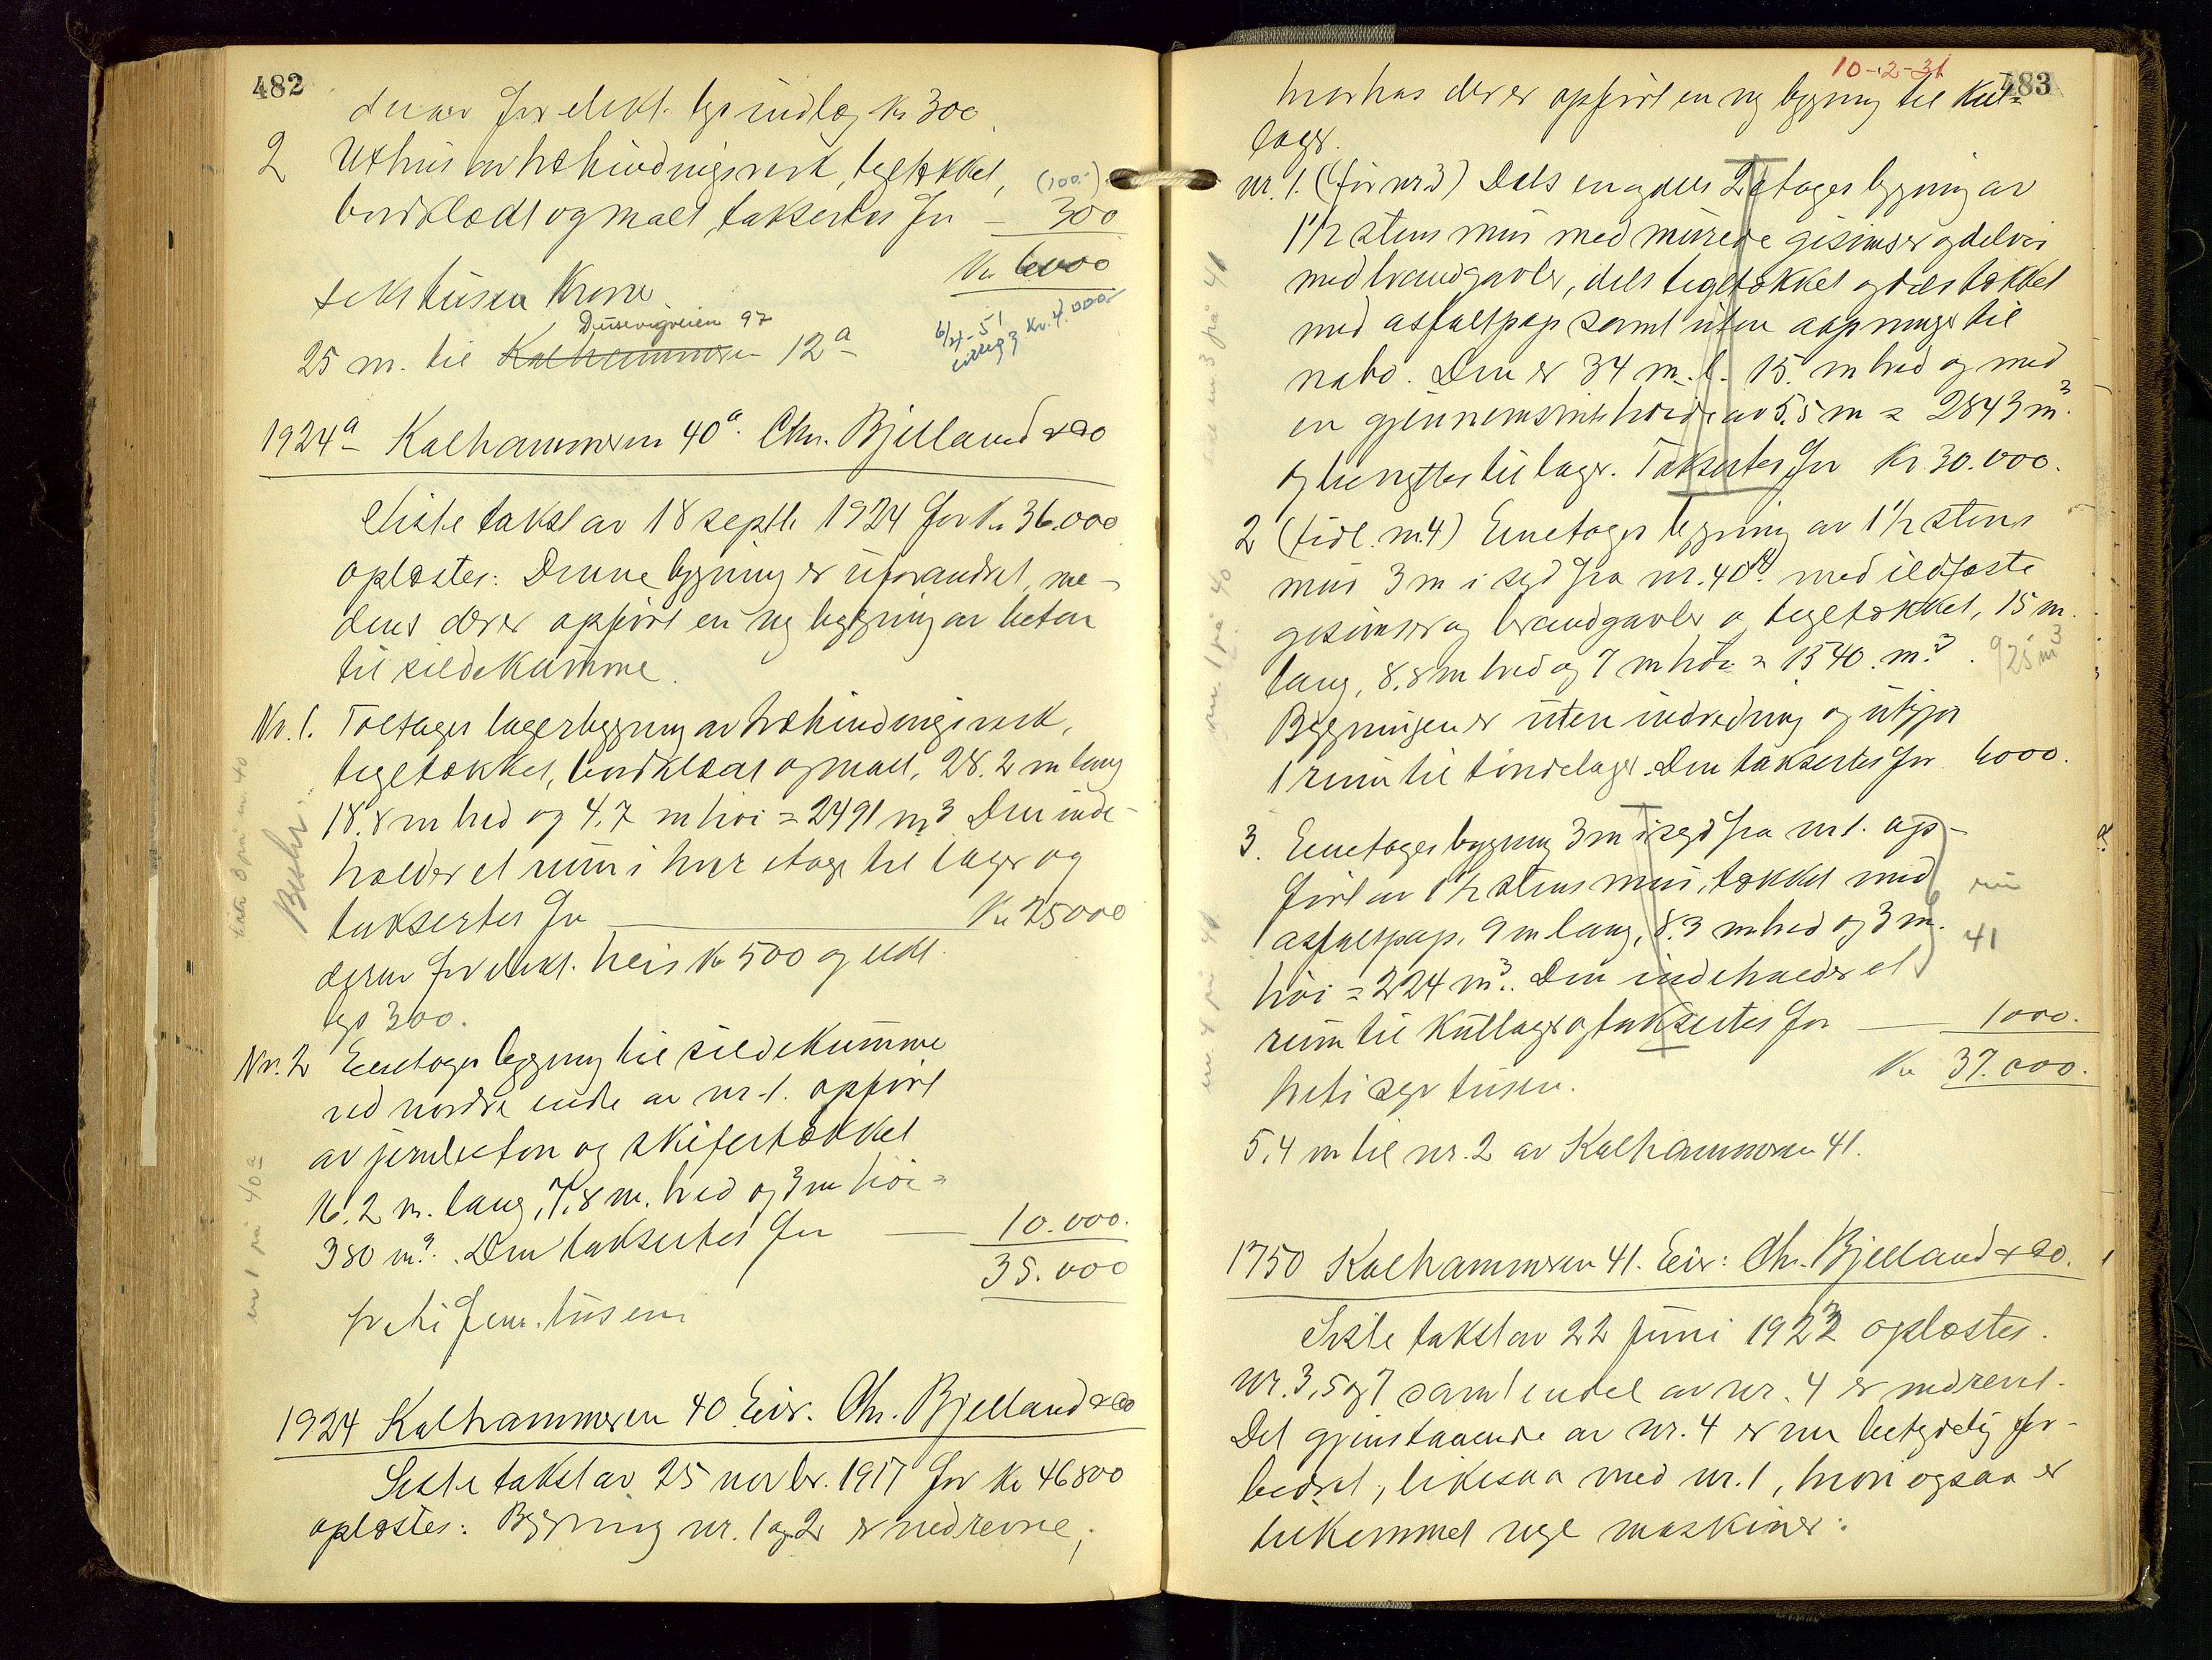 482
derav for elekt. lys indlæg Kr 300
2 Uthus av træbindingsverk, tegltækket, (100.-)
bordklædt og malt, taksertes for — 300
Kr 6000
seks tusen Kroner
Dusevigveien 97
25 m. til Kalhammeren 12a
6/4-51
Kr. 4.000
1924a Kalhammeren 40a. Chr. Bjelland & Co
Siste takst av 18 septb. 1924 for Kr 36.000
oplæstes: Denne bygning er uforandret, me-
dens der er opført en ny bygning av beton
til sildekumme.
Nr. 1. Toetages lagerbygning av træbindingsverk,
tegltækket, bordklædt og malt, 28.2 m lang
18.8 m bred og 4.7 m høi = 2491 m3 Den inde-
holder et rum i hver etage til lager og
taksertes for — Kr 25000
derav for elekt. heis Kr 500 og elekt.
lys 300.
Nr. 2 Eenetages bygning til sildekumme
ved nordre ende av nr. 1. opført
av jernbeton og skifertækket
16.2 m. lang, 7.8 m. bred og 3 m høi =
380 m3. Den taksertes for — 10.000.
35.000
tretifem tusen
1924 Kalhammeren 40 Eier. Chr. Bjelland & Co
Siste takst av 25 novbr. 1917 for Kr 46800
oplæstes: Bygning nr. 1 og 2 er nedrevne,
10-2-31
483
hvorhos der er opført en ny bygning til Kul-
lager.
nr. 1. (før nr 3) Dels en og dels 2 etages bygning av
1 1/2 stens mur med murede gesimser og delvis
med brandgavler, dels tegltækket og dels tækket
med asfaltpap samt uten aapninger til
nabo. Den er 34 m. l. 15. m bred og med
en gjennemsnitshøide av 5.5 m = 2843 m3.
og benyttes til lager. Taksertes for Kr 30.000.
2 (tidl. nr. 4) Eenetages bygning av 1 1/2 stens
mur 3 m i syd fra nr. 40a med ildfaste
gesimser og brandgavler og tegltækket, 15 m.
lang, 8.8 m bred og 7 m høi = 1340. m3. 925 m3
Bygningen er uten indredning og utgjør
1 rum til tøndelager. Den taksertes for 6000.
3. Eenetages bygning 3 m i syd fra nr 1. op-
ført av 1 1/2 stens mur, tækket med
asfaltpap, 9 m lang, 8.3 m bred og 3 m. 41
høi = 224 m3. Den indeholder et
rum til Kullager og taksertes for — 1000.
Kr 37.000.
treti syv tusen.
5.4 m til nr. 2 av Kalhammeren 41.
1750 Kalhammeren 41. Eier: Chr. Bjelland & Co.
Siste takst av 22 juni 1922 oplæstes.
Nr. 3, 5 og 7 samt endel av nr. 4 er nedrevet.
Det gjenstaaende av nr. 4 er nu betydelig for-
bedret, likesaa med nr. 1, hvori ogsaa er
tilkommet nye maskiner: